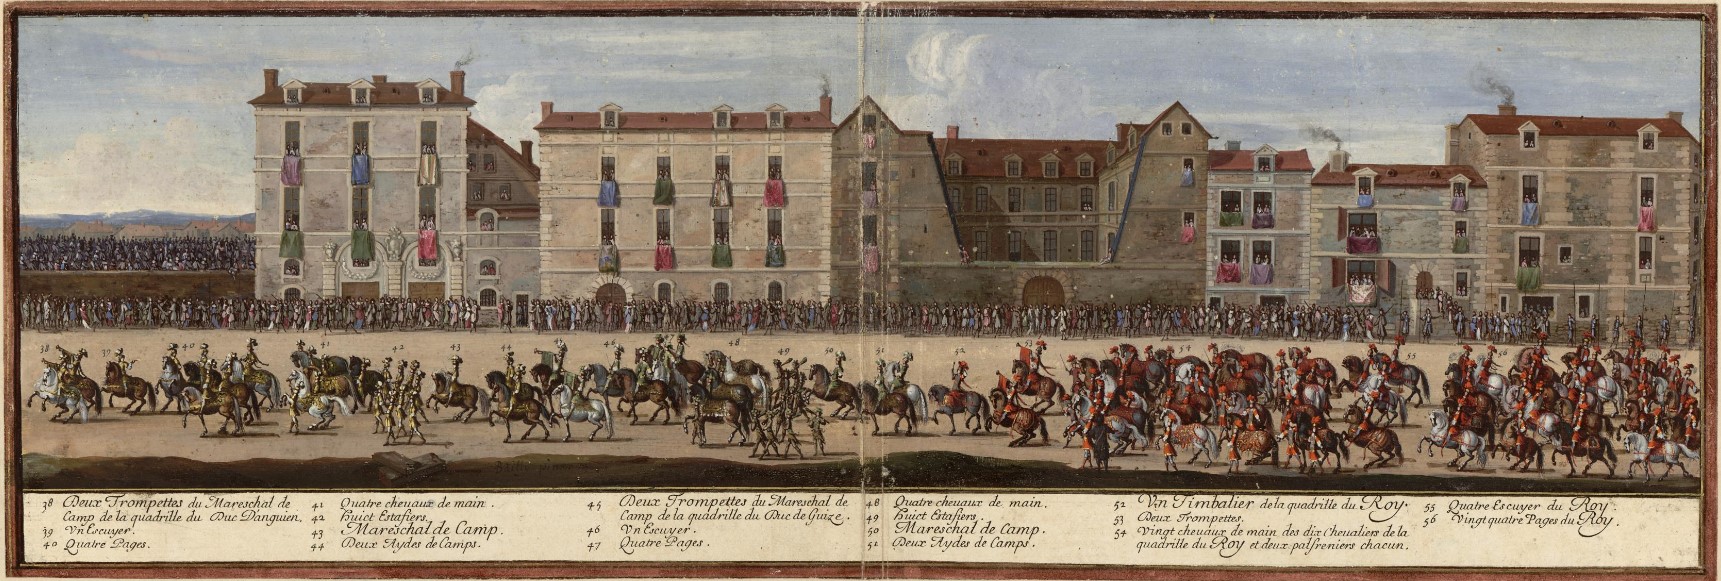 38 39 40 41 42 43 44 45 46 48 49 50 51 52 53 54 55 56
38 Deux Trompettes du Mareschal de
Camp de la quadrille du Duc D'anguien.
39 Vn Escuyer.
40 Quatre Pages.
41 Quatre cheuaux de main.
42 Huict Estafiers.
43 Mareschal de Camp.
44 Deux Aydes de Camps.
45 Deux Trompettes du Mareschal de
Camp de la quadrille du Duc de Guize.
46 Vn Escuyer.
47 Quatre Pages.
48 Quatre cheuaux de main.
49 huict Estafiers.
50 Mareschal de Camp.
51 Deux Aydes de Camps.
52 Vn Timbalier de la quadrille du Roy.
53 Deux Trompettes.
54 Vingt cheuaux de main des dix Cheualiers de la
quadrille du Roy et deux palfreniers chacun.
55 Quatre Escuyer du Roy.
56 Vingt quatre Pages du Roy.